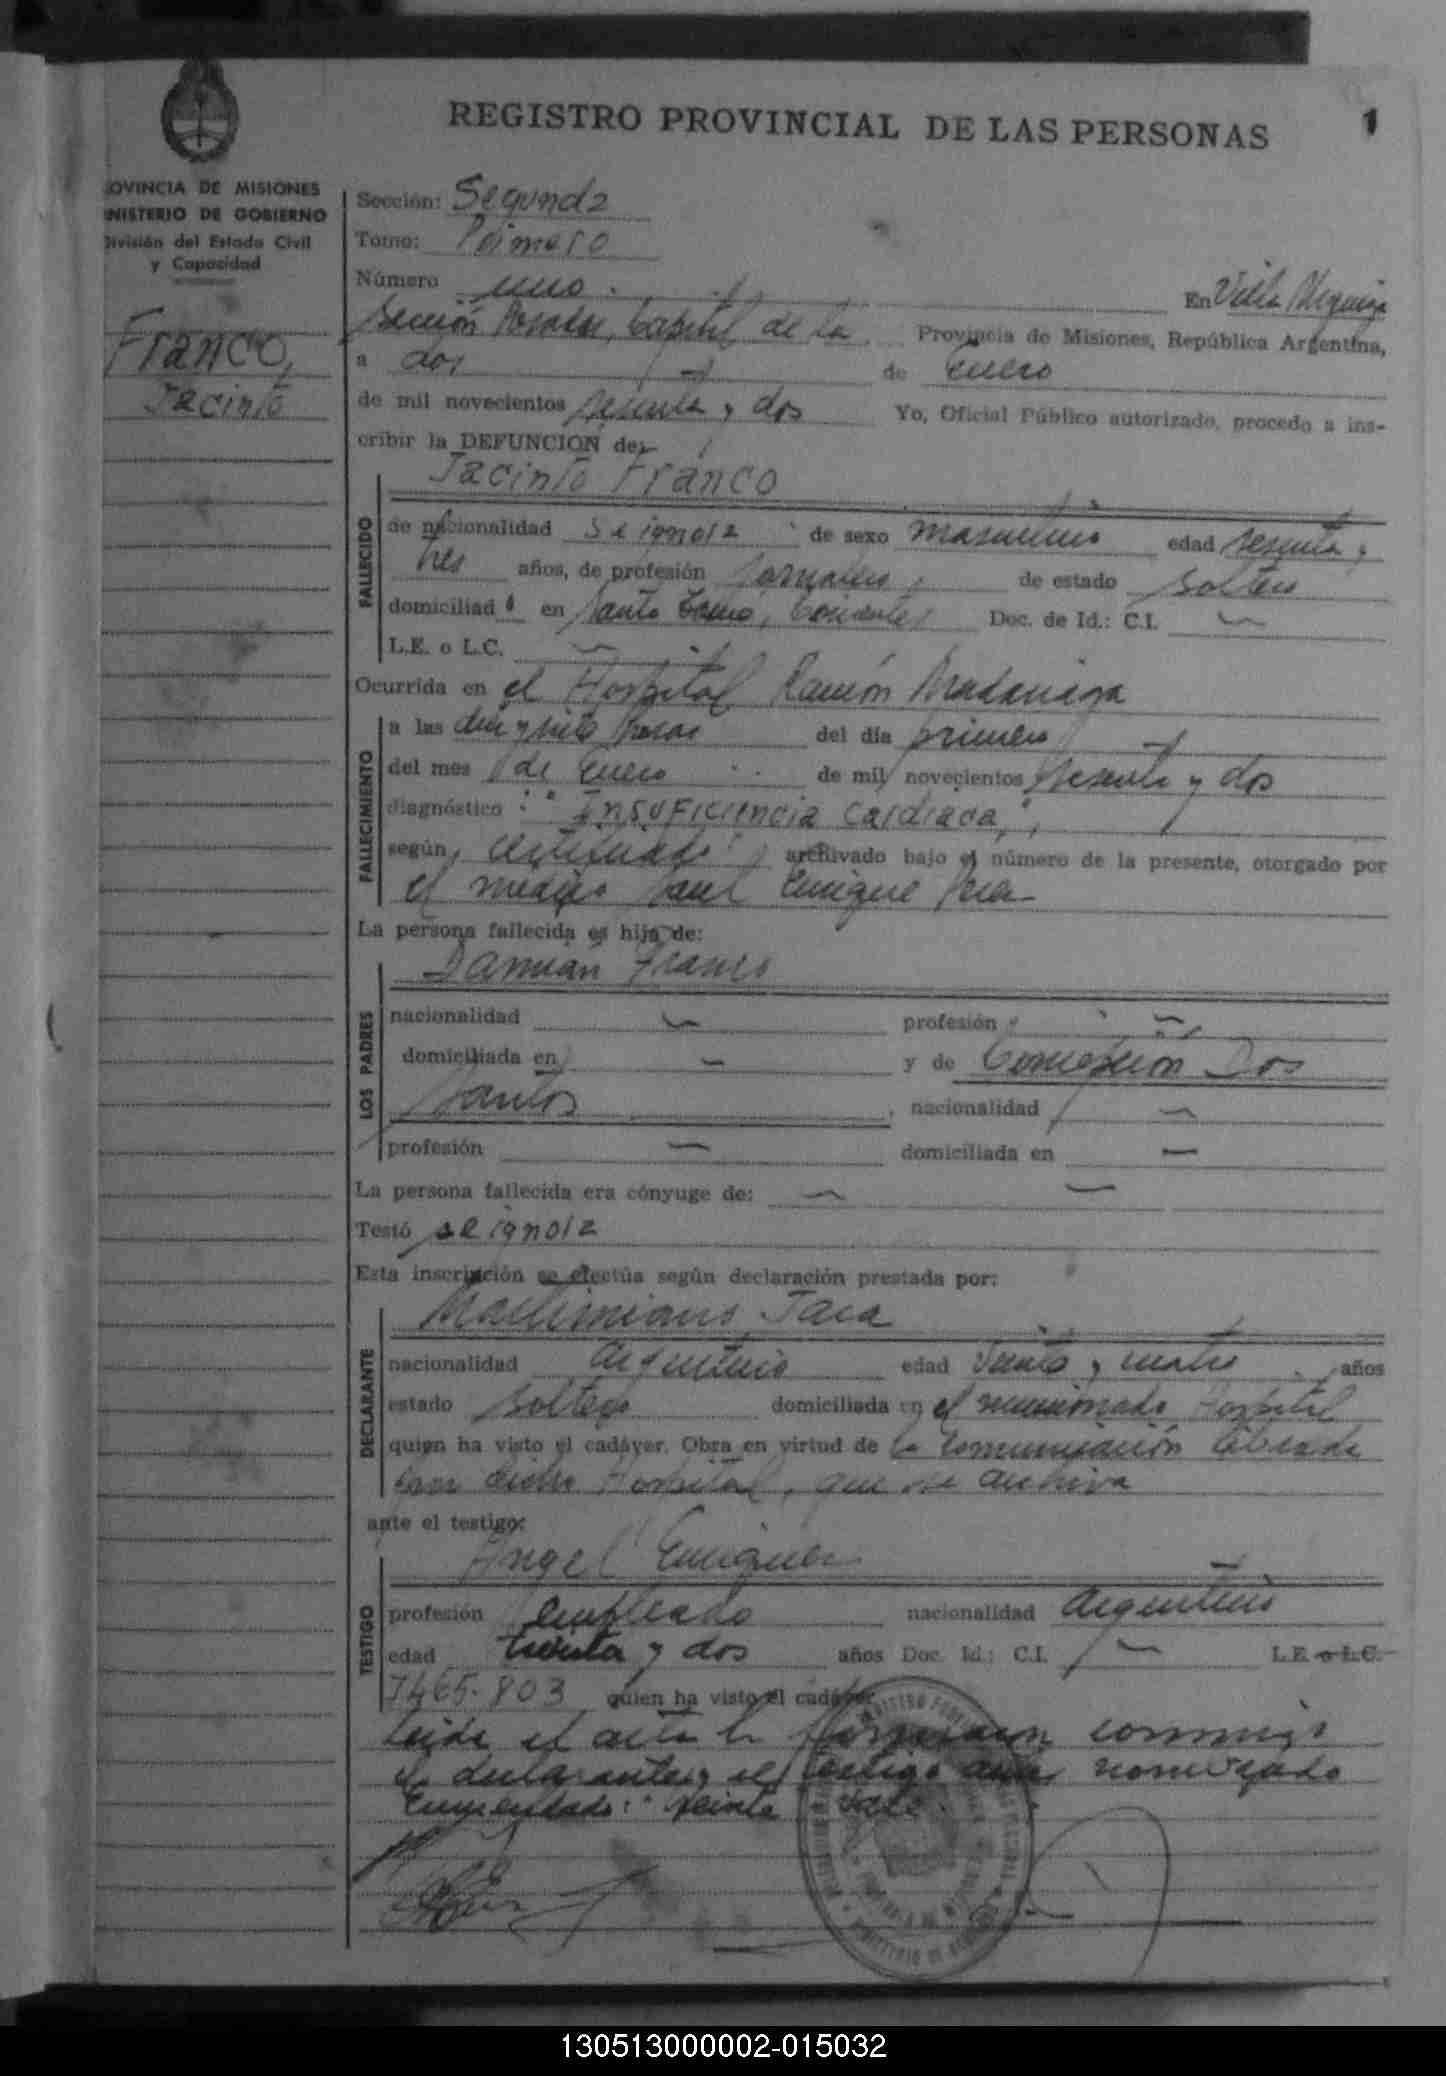 REGISTRO PROVINCIAL DE LAS PERSONAS
1
OVINCIA DE MISIONES
NISTERIO DE GOBIERNO
División del Estado Civil
y Capacidad
Franco,
Jacinto
Sección: Segunda
Tomo: Primero
Número uno.
En Villa Urquiza
Sección Posadas, Capital de la Provincia de Misiones, República Argentina,
a dos de Enero
de mil novecientos sesenta y dos Yo, Oficial Público autorizado, procedo a ins-
cribir la DEFUNCION de:
Jacinto Franco
FALLECIDO
de nacionalidad Se ignora de sexo masculino edad sesenta y
tres años, de profesión Jornalero, de estado soltero
domiciliado en Santo Tomé, Corrientes Doc. de Id.: C.I. —
L.E. o L.C. —
Ocurrida en el Hospital Ramón Madariaga
FALLECIMIENTO
a las diez y siete horas del día primero
del mes de Enero de mil novecientos sesenta y dos
diagnóstico: "Insuficiencia cardiaca",
según certificado archivado bajo el número de la presente, otorgado por
el médico Enrique
La persona fallecida es hija de:
LOS PADRES
Damián Franco
nacionalidad — profesión —
domiciliada en — y de Concepción Dos
Santos, nacionalidad —
profesión — domiciliada en —
La persona fallecida era cónyuge de: — —
Testó se ignora
Esta inscripción se efectúa según declaración prestada por:
DECLARANTE
Maximiano Jara
nacionalidad Argentino edad veinte y cuatro años
estado soltero domiciliada en el mencionado Hospital
quien ha visto el cadáver. Obra en virtud de la comunicación librada
por dicho Hospital, que se archiva
ante el testigo:
TESTIGO
Angel Enriquez
profesión empleado nacionalidad Argentino
edad treinta y dos años Doc. Id.: C.I. — L.E. o L.C.
7465.803 quien ha visto el cadáver.
Leída el acta la firmaron conmigo
el declarante y el testigo antes nombrado
Enmendado: "treinta" Vale.
130513000002-015032